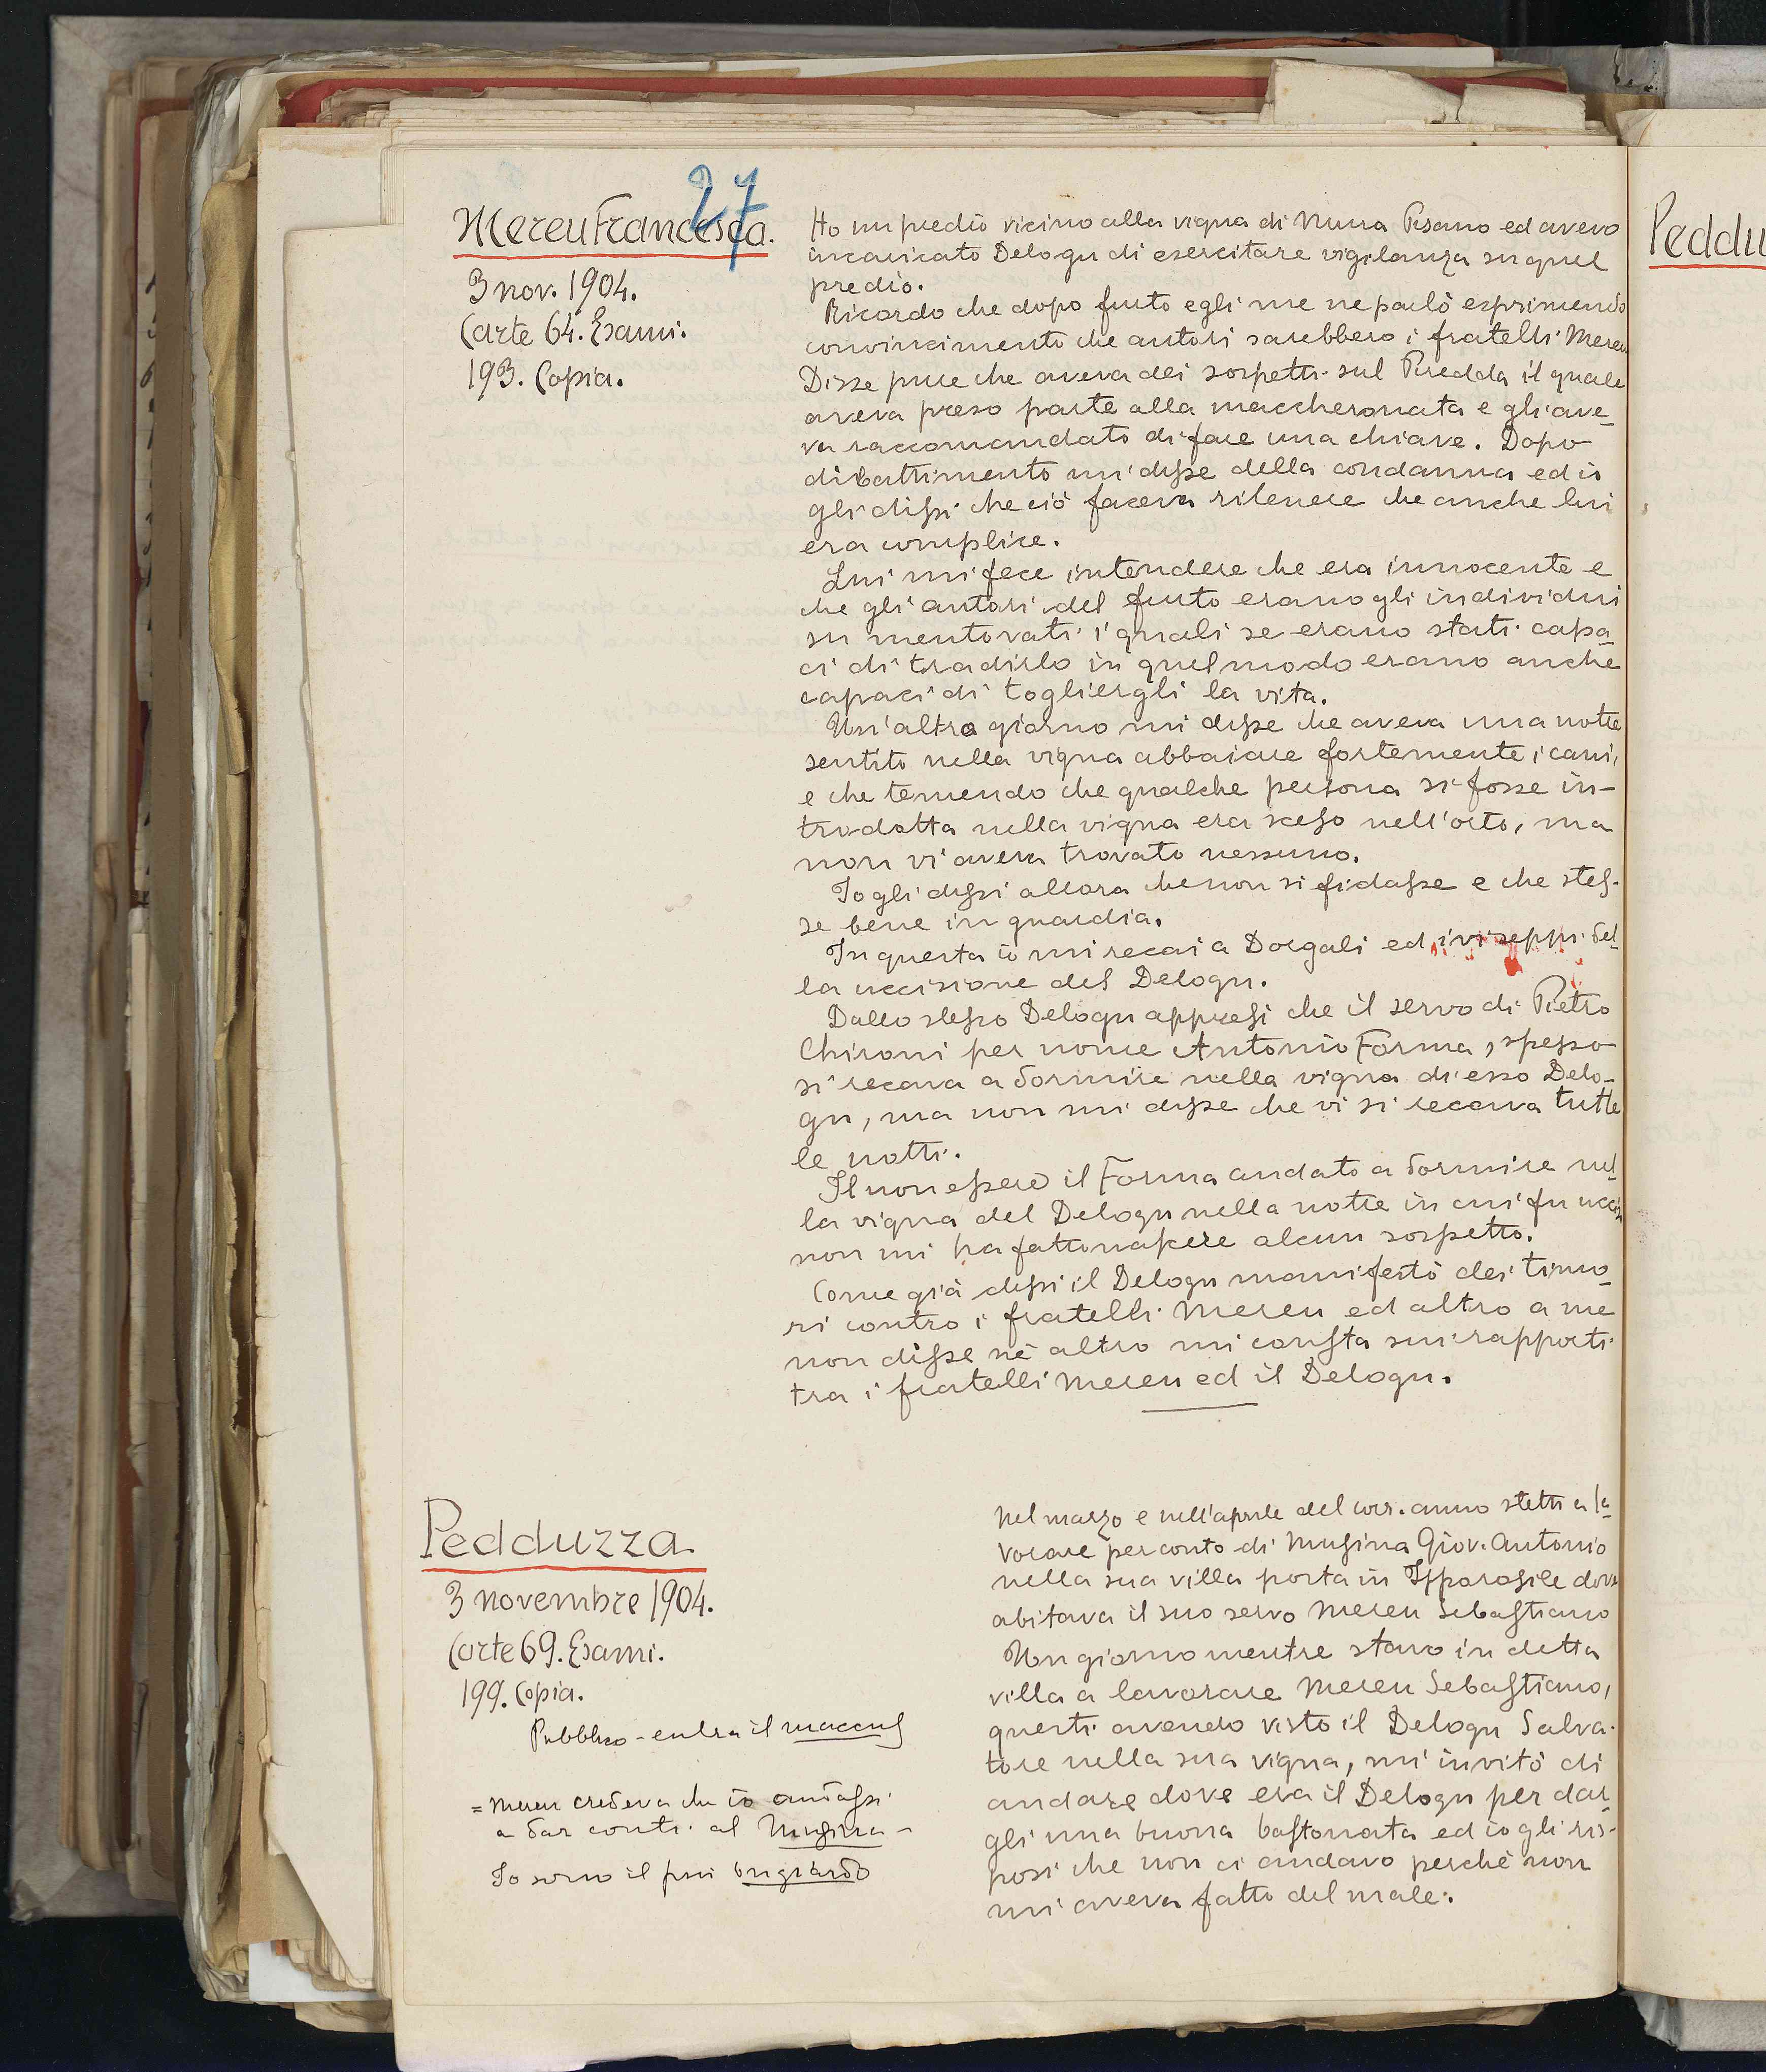 27
Mereu Francesca.
3 nov. 1904.
Carte 64. Esami.
193. Copia.
Ho un predio vicino alla vigna di Nunna Pisano ed avevo
incaricato Delogu di esercitare vigilanza su quel
predio.
Ricordo che dopo furto egli me ne parlò esprimendo
convincimento che autori sarebbero i fratelli Mereu
Disse pure che aveva dei sospetti sul Piredda il quale
aveva preso parte alla maccheronata e gli ave-
va raccomandato di fare una chiave. Dopo
dibattimento mi disse della condanna ed io
gli dissi che ciò faceva ritenere che anche lui
era complice.
Lui mi fece intendere che era innocente e
che gli autori del furto erano gli individui
su mentovati i quali se erano stati capa-
ci di tradirlo in quel modo erano anche
capaci di togliergli la vita.
Un'altro giorno mi disse che aveva una notte
sentito nella vigna abbaiare fortemente i cani,
e che temendo che qualche persona si fosse in-
trodotta nella vigna era sceso nell'orto, ma
non vi aveva trovato nessuno.
Io gli dissi allora che non si fidasse e che stes-
se bene in guardia.
In questa io mi recai a Dorgali ed ivi seppi del-
la uccisione del Delogu.
Dallo stesso Delogu appresi che il servo di Pietro
Chironi per nome Antonio Forma, spesso
si recava a dormire nella vigna di esso Delo-
gu, ma non mi disse che vi si recava tutte
le notti.
Il non essere il Forma andato a dormire nel-
la vigna del Delogu nella notte in cui fu ucciso
non mi ha fatto nascere alcun sospetto.
Come già dissi il Delogu manifestò dei timo-
ri contro i fratelli Mereu ed altro a me
non disse nè altro mi consta sui rapporti
tra i fratelli Mereu ed il Delogu.
Pedduzza.
3 novembre 1904.
Carte 69. Esami.
199. Copia.
Pubblico - entra il
= Mereu credeva che io andassi
a dar conti al Musina -
Io sono il più bugiardo
Nel marzo e nell'aprile del corr. anno stetti a la-
vorare per conto di Musina Giov. Antonio
nella sua villa posta in dove
abitava il suo servo Mereu Sebastiano
Un giorno mentre stavo in detta
villa a lavorare Mereu Sebastiano,
questi avendo visto il Delogu Salva-
tore nella sua vigna, mi invitò di
andare dove era il Delogu per dar-
gli una buona bastonata ed io gli ris-
posi che non ci andavo perchè non
mi aveva fatto del male.
Peddu